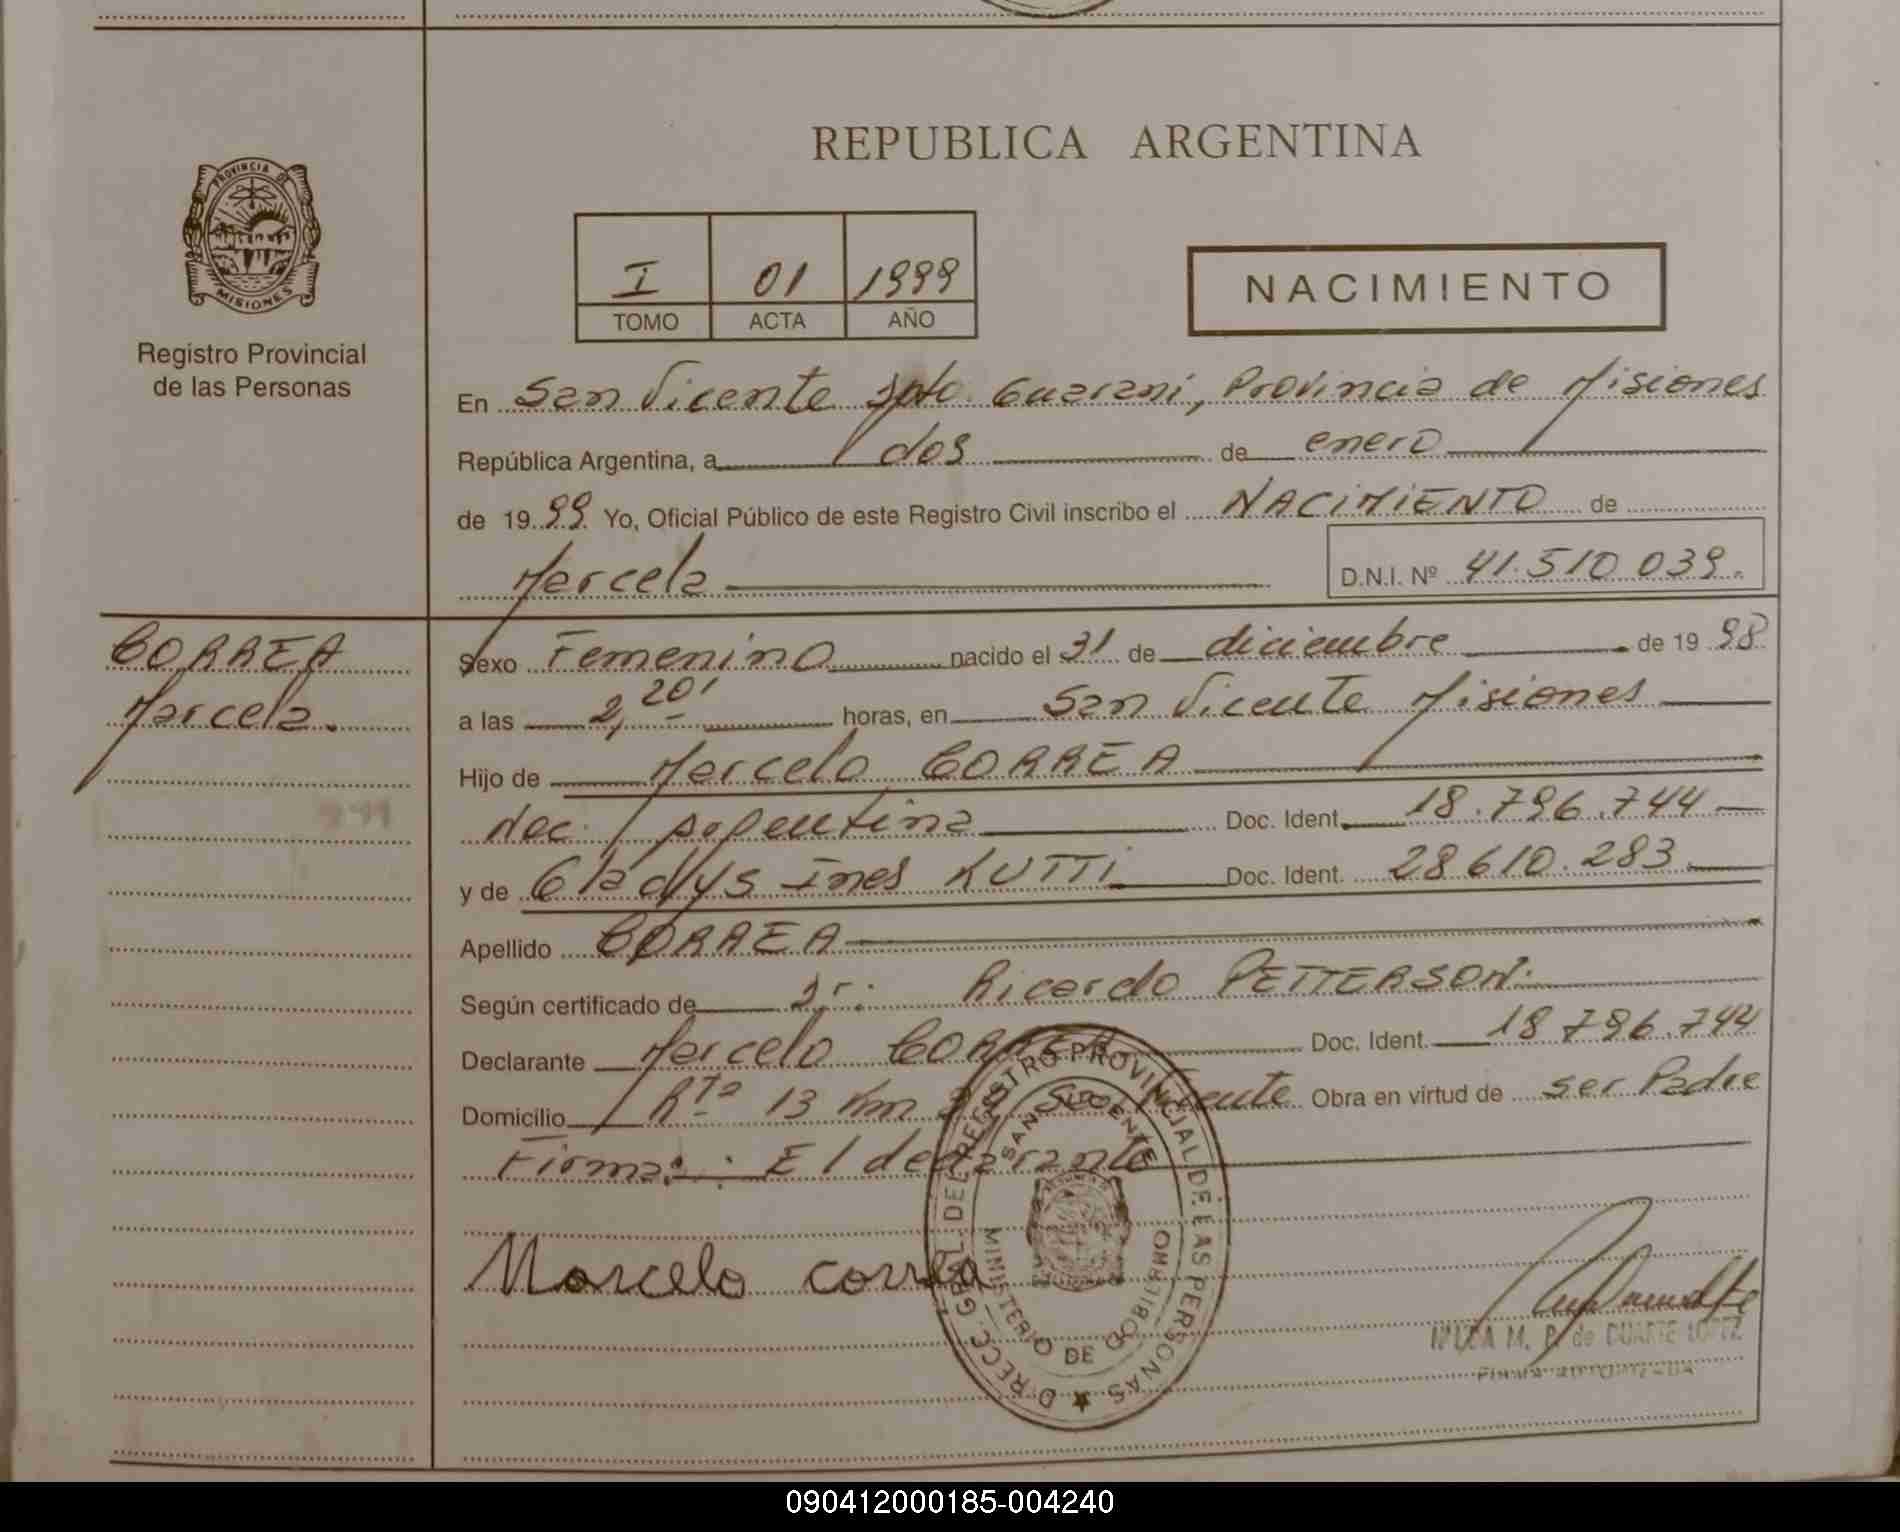 REPUBLICA ARGENTINA
PROVINCIA DE
MISIONES
Registro Provincial
de las Personas
I 01 1999
TOMO ACTA AÑO
NACIMIENTO
En San Vicente Dpto. Guarani, Provincia de Misiones
República Argentina, a dos de enero
de 1999 Yo, Oficial Público de este Registro Civil inscribo el NACIMIENTO de
Marcela D.N.I. Nº 41.510 039.
CORREA
Marcela.
Sexo Femenino nacido el 31 de diciembre de 1998
a las 2,20' horas, en San Vicente Misiones
Hijo de Marcelo CORREA
nac. Argentina Doc. Ident. 18.796.744
y de Gladys Ines LUTTI Doc. Ident. 28610.283.
Apellido CORREA
Según certificado de Dr. Ricardo PETTERSON.
Declarante Marcelo CORREA Doc. Ident. 18 796.744
Domicilio Rta 13 Km San Vicente Obra en virtud de ser Padre
Firma: El declarante
Marcelo correa
DIRECC. GRAL. DEL REGISTRO PROVINCIAL DE LAS PERSONAS
SAN VICENTE
MINISTERIO DE GOBIERNO
M. P. de DUARTE LOPEZ
FIRMA AUTORIZADA
090412000185-004240